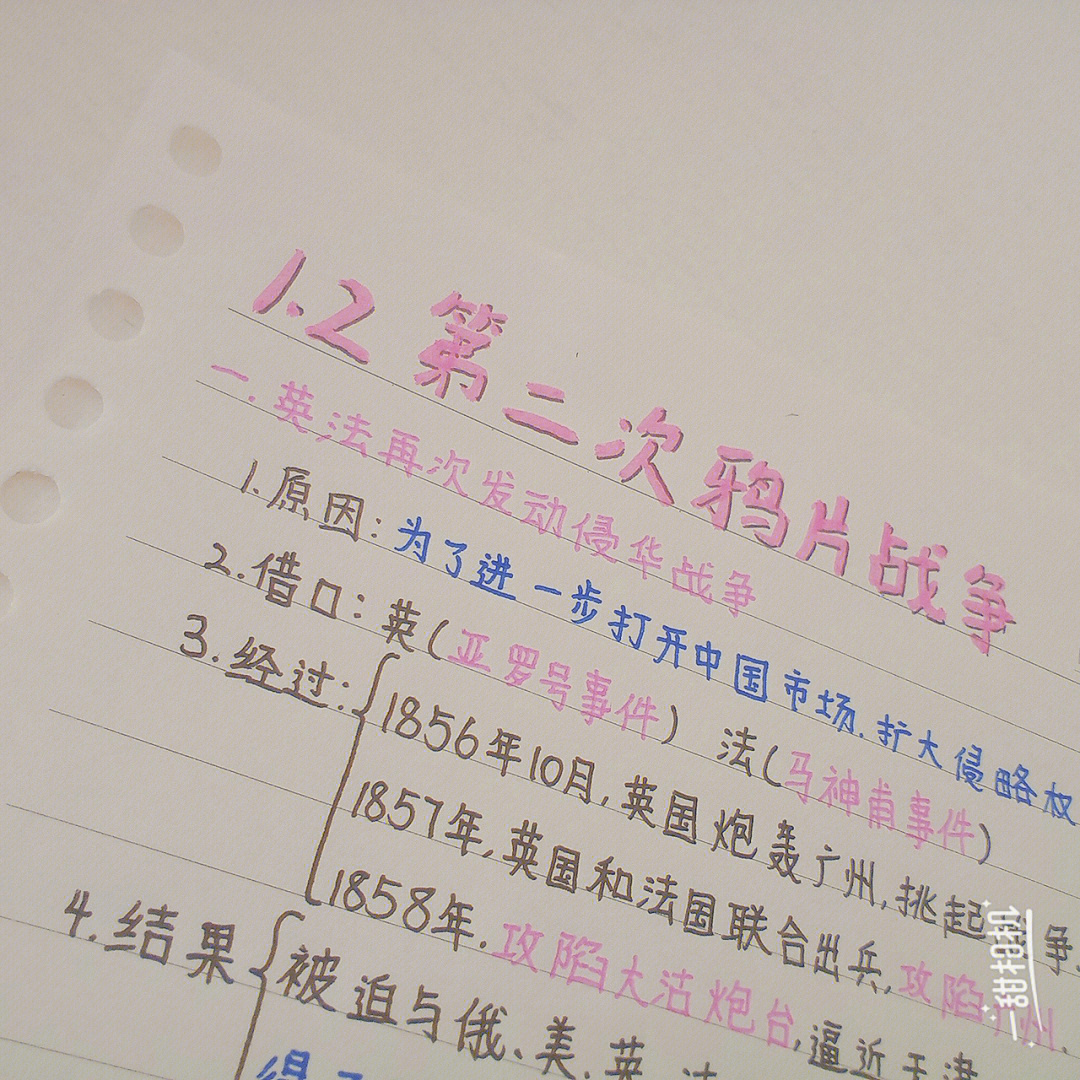 1.2 第二次鸦片战争
一.英法再次发动侵华战争
1.原因:为了进一步打开中国市场.扩大侵略权
2.借口:英(亚罗号事件) 法(马神甫事件)
3.经过:
1856年10月,英国炮轰广州,挑起战争.
1857年,英国和法国联合出兵,攻陷广州.
1858年.攻陷大沽炮台,逼近天津
4.结果
被迫与俄、美、英
甜拍相机